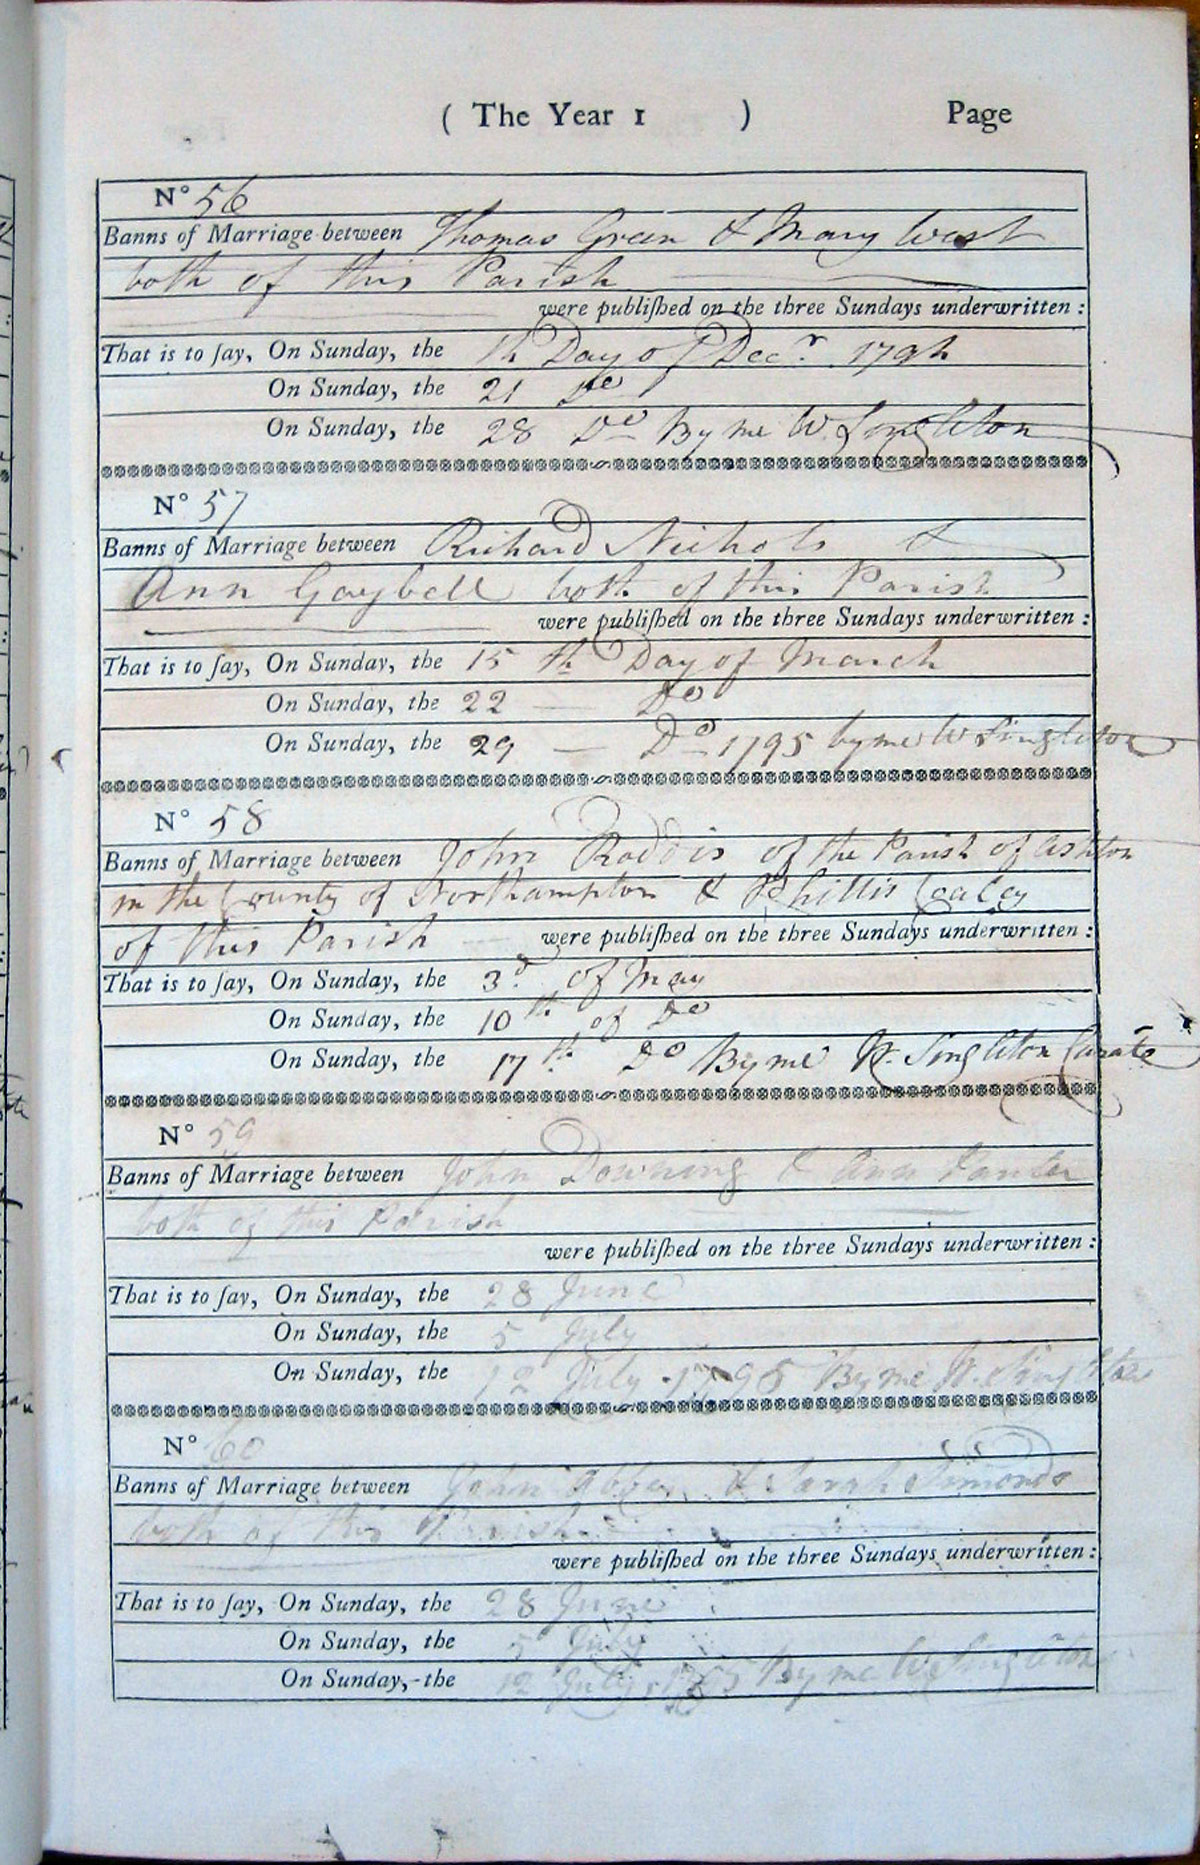 ( The Year 1 ) Page
No 56
Banns of Marriage between Thomas Green & Mary West
both of this Parish
were publiſhed on the three Sundays underwritten :
That is to ſay, On Sunday, the 14 Day of Decr. 1794
On Sunday, the 21 Do
On Sunday, the 28 Do By me W. Singleton
No 57
Banns of Marriage between Richard Nichols &
Ann Gaybell both of this Parish
were publiſhed on the three Sundays underwritten :
That is to ſay, On Sunday, the 15 th Day of March
On Sunday, the 22 — Do
On Sunday, the 29 — Do 1795 by me W Singleton
No 58
Banns of Marriage between John Roddis of the Parish of Ashton
in the County of Northampton & Phillis
of this Parish were publiſhed on the three Sundays underwritten :
That is to ſay, On Sunday, the 3d. of May
On Sunday, the 10th of Do
On Sunday, the 17th. Do By me W. Singleton Curate
No 59
Banns of Marriage between John Downing & Ann
both of this Parish
were publiſhed on the three Sundays underwritten :
That is to ſay, On Sunday, the 28 June
On Sunday, the 5 July
On Sunday, the 12 July 1795 By me W. Singleton
No 60
Banns of Marriage between John & Sarah Simonds
both of this Parish
were publiſhed on the three Sundays underwritten :
That is to ſay, On Sunday, the 28 June
On Sunday, the 5 July
On Sunday, the 12 July By me W. Singleton